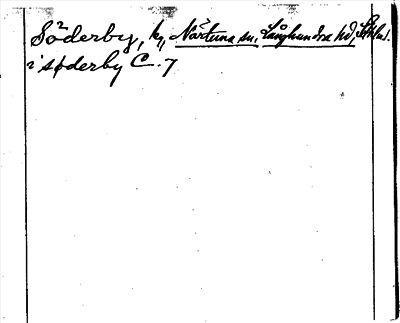 Söderby, by, Närtuna sn. Långhundra hd, Sthlm l.
i søderby C. 7